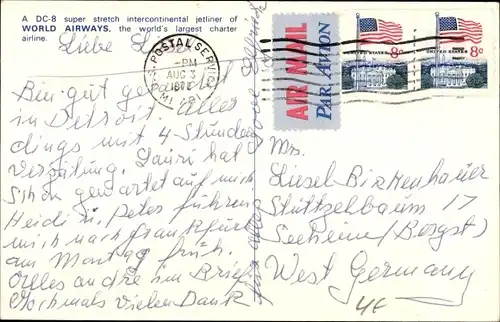 A DC-8 super stretch intercontinental jetliner of
WORLD AIRWAYS, the world's largest charter
airline.
Liebe
Bin gut gelandet
in Detroit aller
dings mit 4 Stunden
Verspätung. Lauri hat
schon gewartet auf mich
Heidi u. Peter führen
mich nach Frankfurt
am Montag früh.
Alles andre im Brief
Nochmals vielen Dank
U.S. POSTAL SERVICE
PM
AUG 3
MI
AIR MAIL
PAR AVION
UNITED STATES 8c
UNITED STATES 8c
Mrs.
Liesel Birkenhauer
Stüttzelbaum 17
Seeheim (Bergst)
West Germany